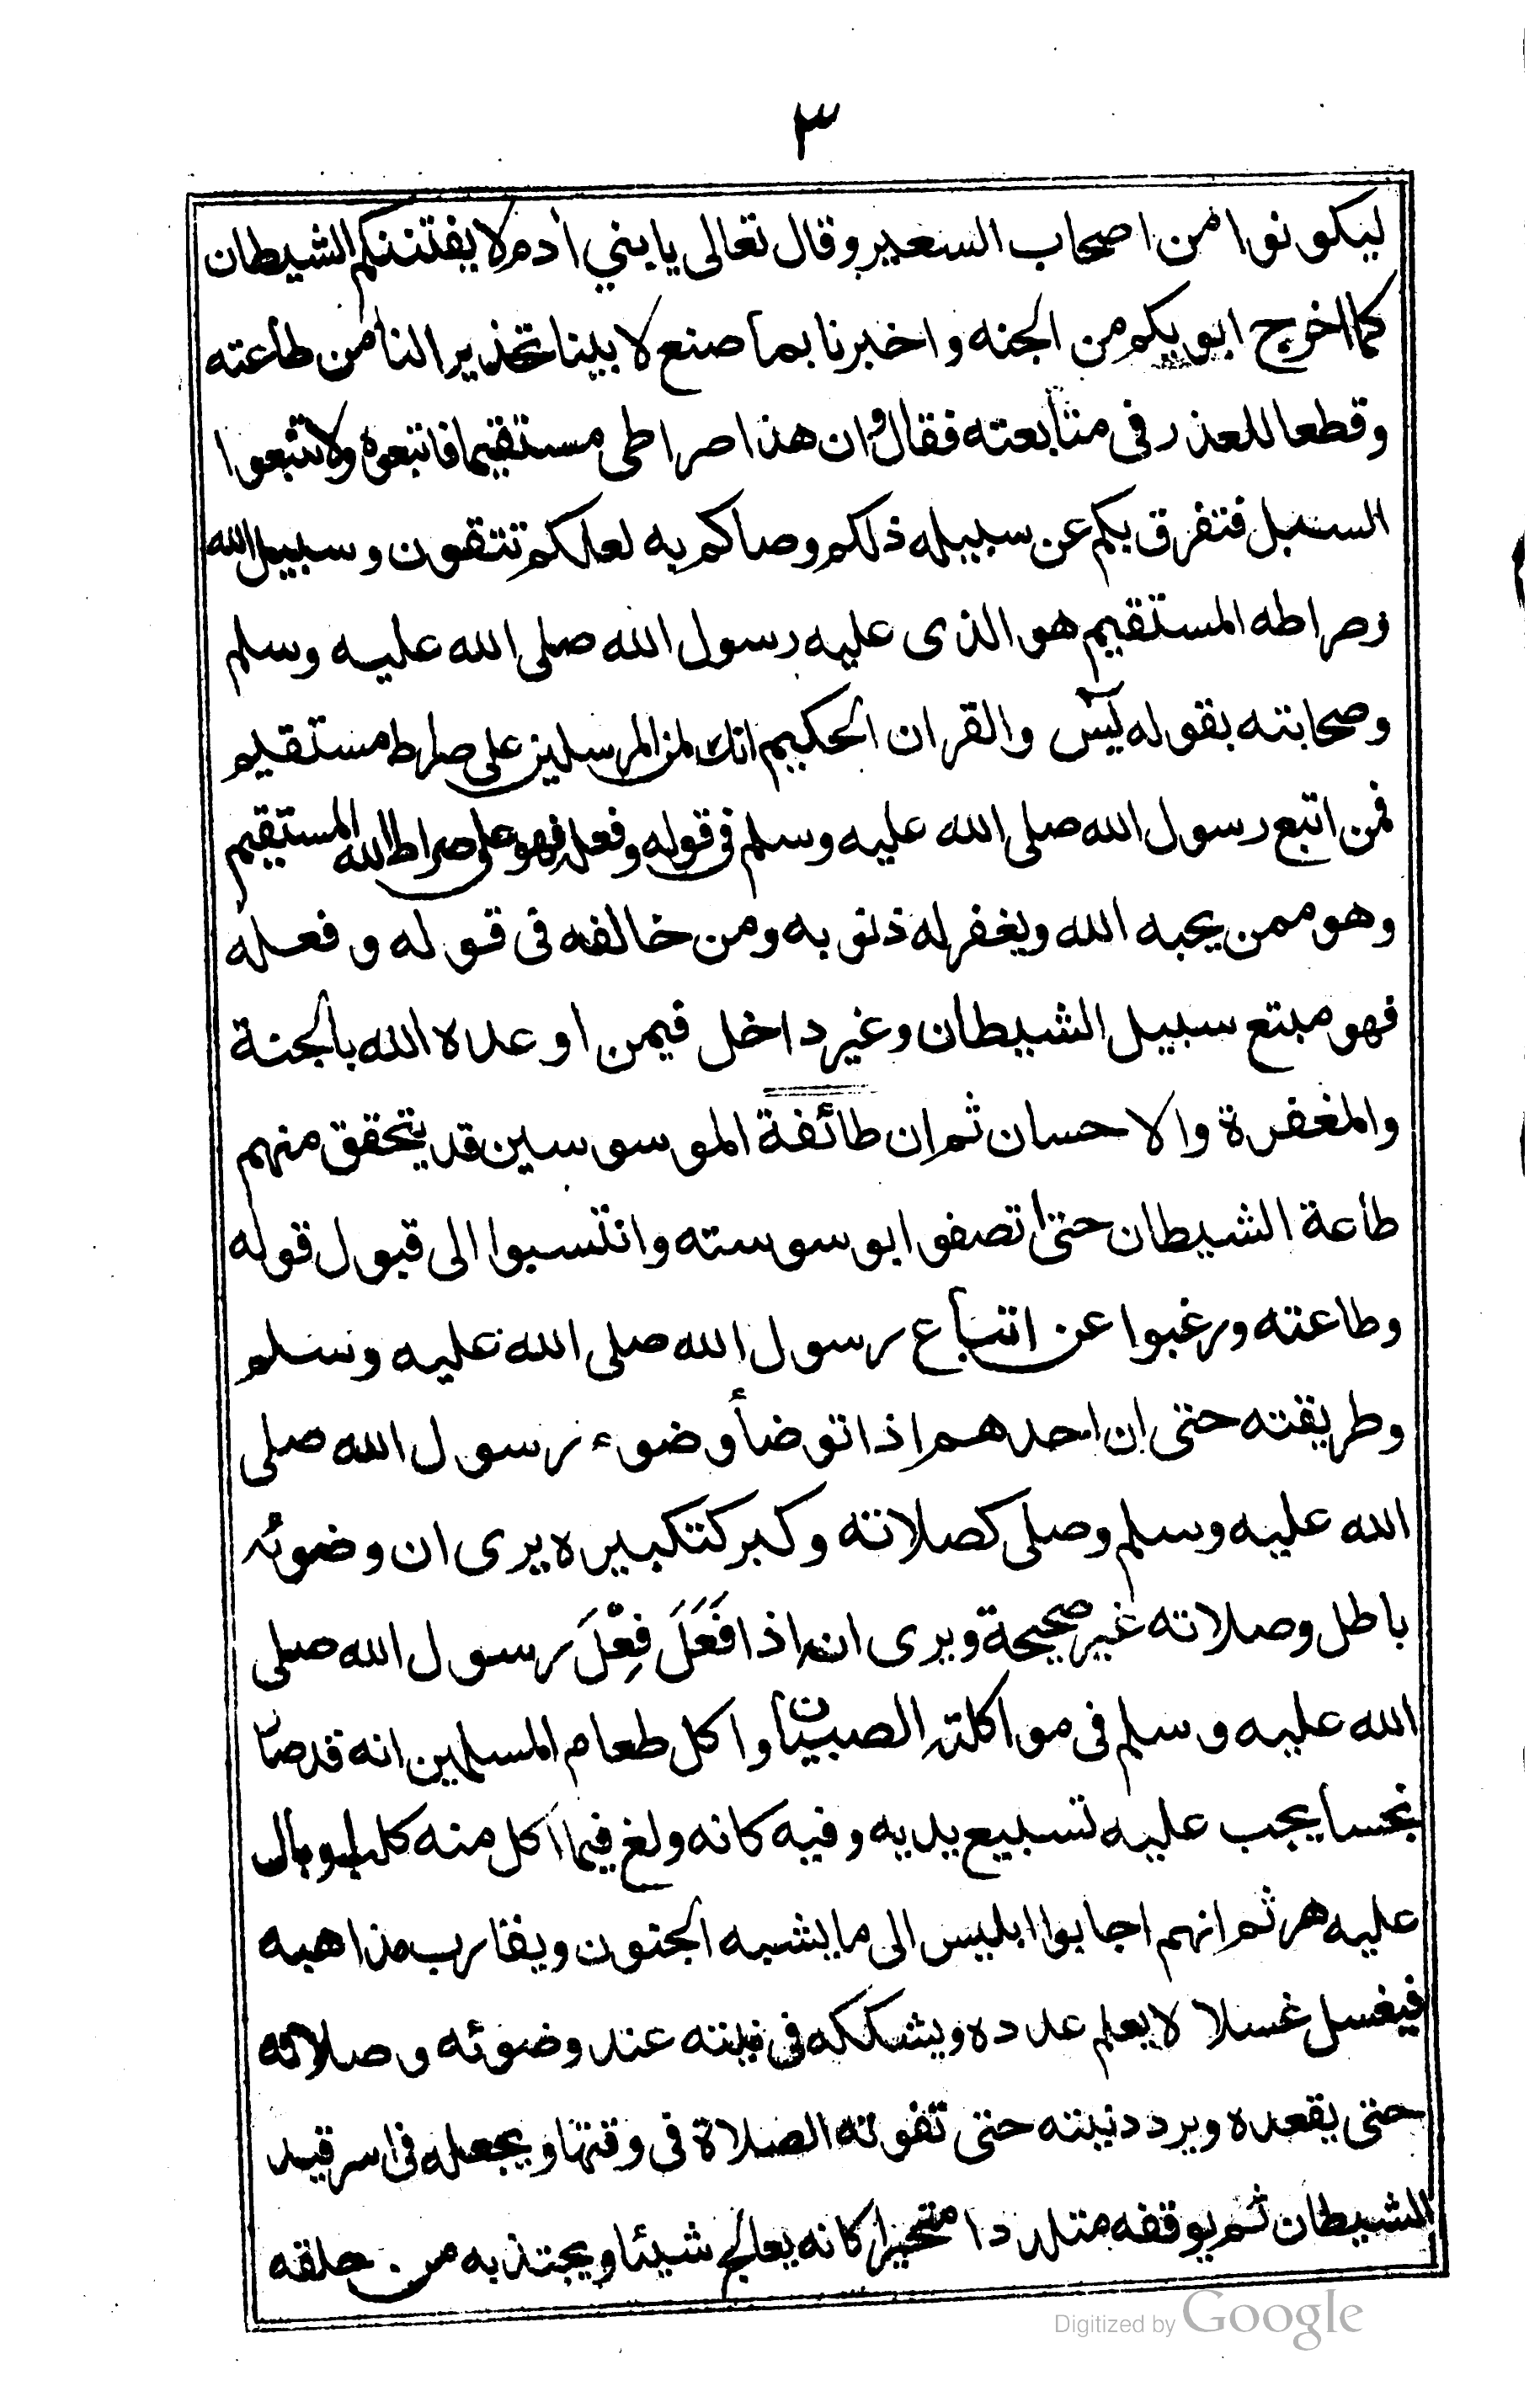 ٣
ليكونوا من اصحاب السعير وقال تعالى يا بني أدم لا يفتننكم الشيطان
كما اخرج ابويكم من الجنه واخبرنا بما صنع لابينا تحذير النا من طاعته
وقطعا للعذر في متابعته فقال وان هذا صراطى مستقيما فاتبعوه ولا تتبعوا
السبل فتفرق بكم عن سبيله ذلكم وصاكم به لعلكم تتقون وسبيل الله
وصراطه المستقيم هو الذى عليه رسول الله صلى الله عليه وسلم
وصحابته بقوله يس والقران الحكيم انك لمن المرسلين على صراط مستقيم
فمن اتبع رسول الله صلى الله عليه وسلم فى قوله وفعله فهو على صراط الله المستقيم
وهو ممن يحبه الله ويغفر له ذنوبه ومن خالفه فى قوله وفعله
فهو مبتع سبيل الشيطان وغير داخل فيمن اوعده الله بالجنة
والمغفرة والاحسان ثم ان طائفة الموسوسين قد يتحقق منهم
طاعة الشيطان حتى اتصفوا بوسوسته وانتسبوا الى قبول قوله
وطاعته ورغبوا عن اتباع رسول الله صلى الله عليه وسلم
وطريقته حتى ان احدهم اذا توضأ وضوء رسول الله صلى
الله عليه وسلم وصلى كصلاته وكبر كتكبيره يرى ان وضوئه
باطل وصلاته غير صحيحة ويرى انه اذا فَعَلَ فِعْلَ رسول الله صلى
الله عليه وسلم فى مواكلته الصبيان واكل طعام المسلمين انه قد صار
نجسا يجب عليه تسبيع يديه وفيه كانه ولغ فيما اكل منه كلب او بال
عليه هر ثم انهم اجابوا ابليس الى ما يشبه الجنون ويقارب مذاهبه
فيغسل غسلا لا يعلم عدده ويشككه فى نيته عند وضوئه وصلاته
حتى يقعده ويردد نيته حتى تفوته الصلاة فى وقتها ويجعله فى اسر قيد
الشيطان ثم يوقفه متلددا متحيرا كانه يعالج شيئا ويجتذبه من حلقه
Digitized by Google